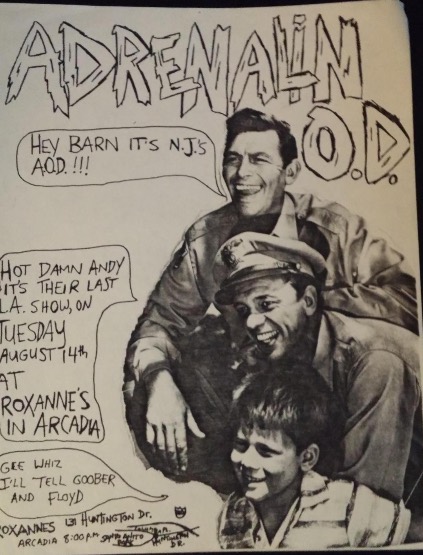 ADRENALIN
O.D.
HEY BARN IT'S N.J.'S
A.O.D. !!!
HOT DAMN ANDY
IT'S THEIR LAST
L.A. SHOW, ON
TUESDAY
AUGUST 14th
AT
ROXANNE'S
IN ARCADIA
GEE WHIZ
I'LL TELL GOOBER
AND FLOYD
OXANNES HUNTINGTON Dr.
ARCADIA 8:00 P.M. SANTA ANITA
HUNTINGTON
DR.